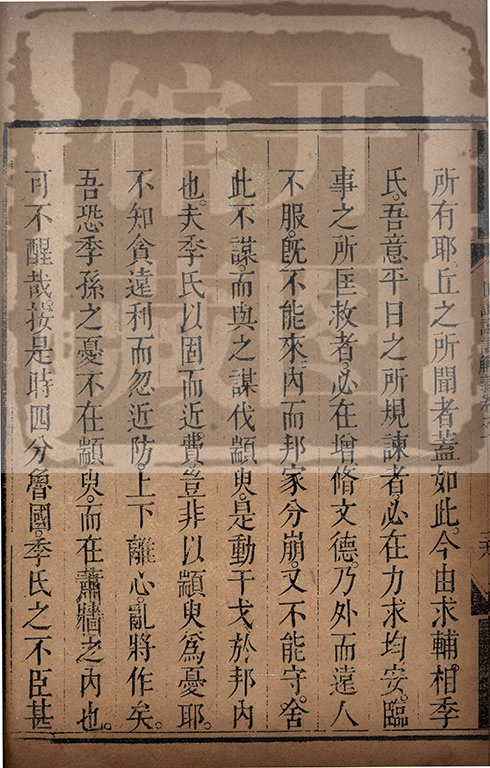 所有耶。丘之所聞者蓋如此。今由求輔相季
氏。吾意平日之所規諫者。必在力求均安。臨
事之所匡救者。必在增脩文德。乃外而遠人
不服。旣不能來。內而邦家分崩。又不能守。舍
此不謀。而與之謀伐顓臾。是動干戈於邦內
也。夫季氏以固而近費。豈非以顓臾爲憂耶。
不知貪遠利而忽近防。上下離心。亂將作矣。
吾恐季孫之憂不在顓臾。而在蕭牆之內也。
可不醒哉。按是時四分魯國。季氏之不臣甚